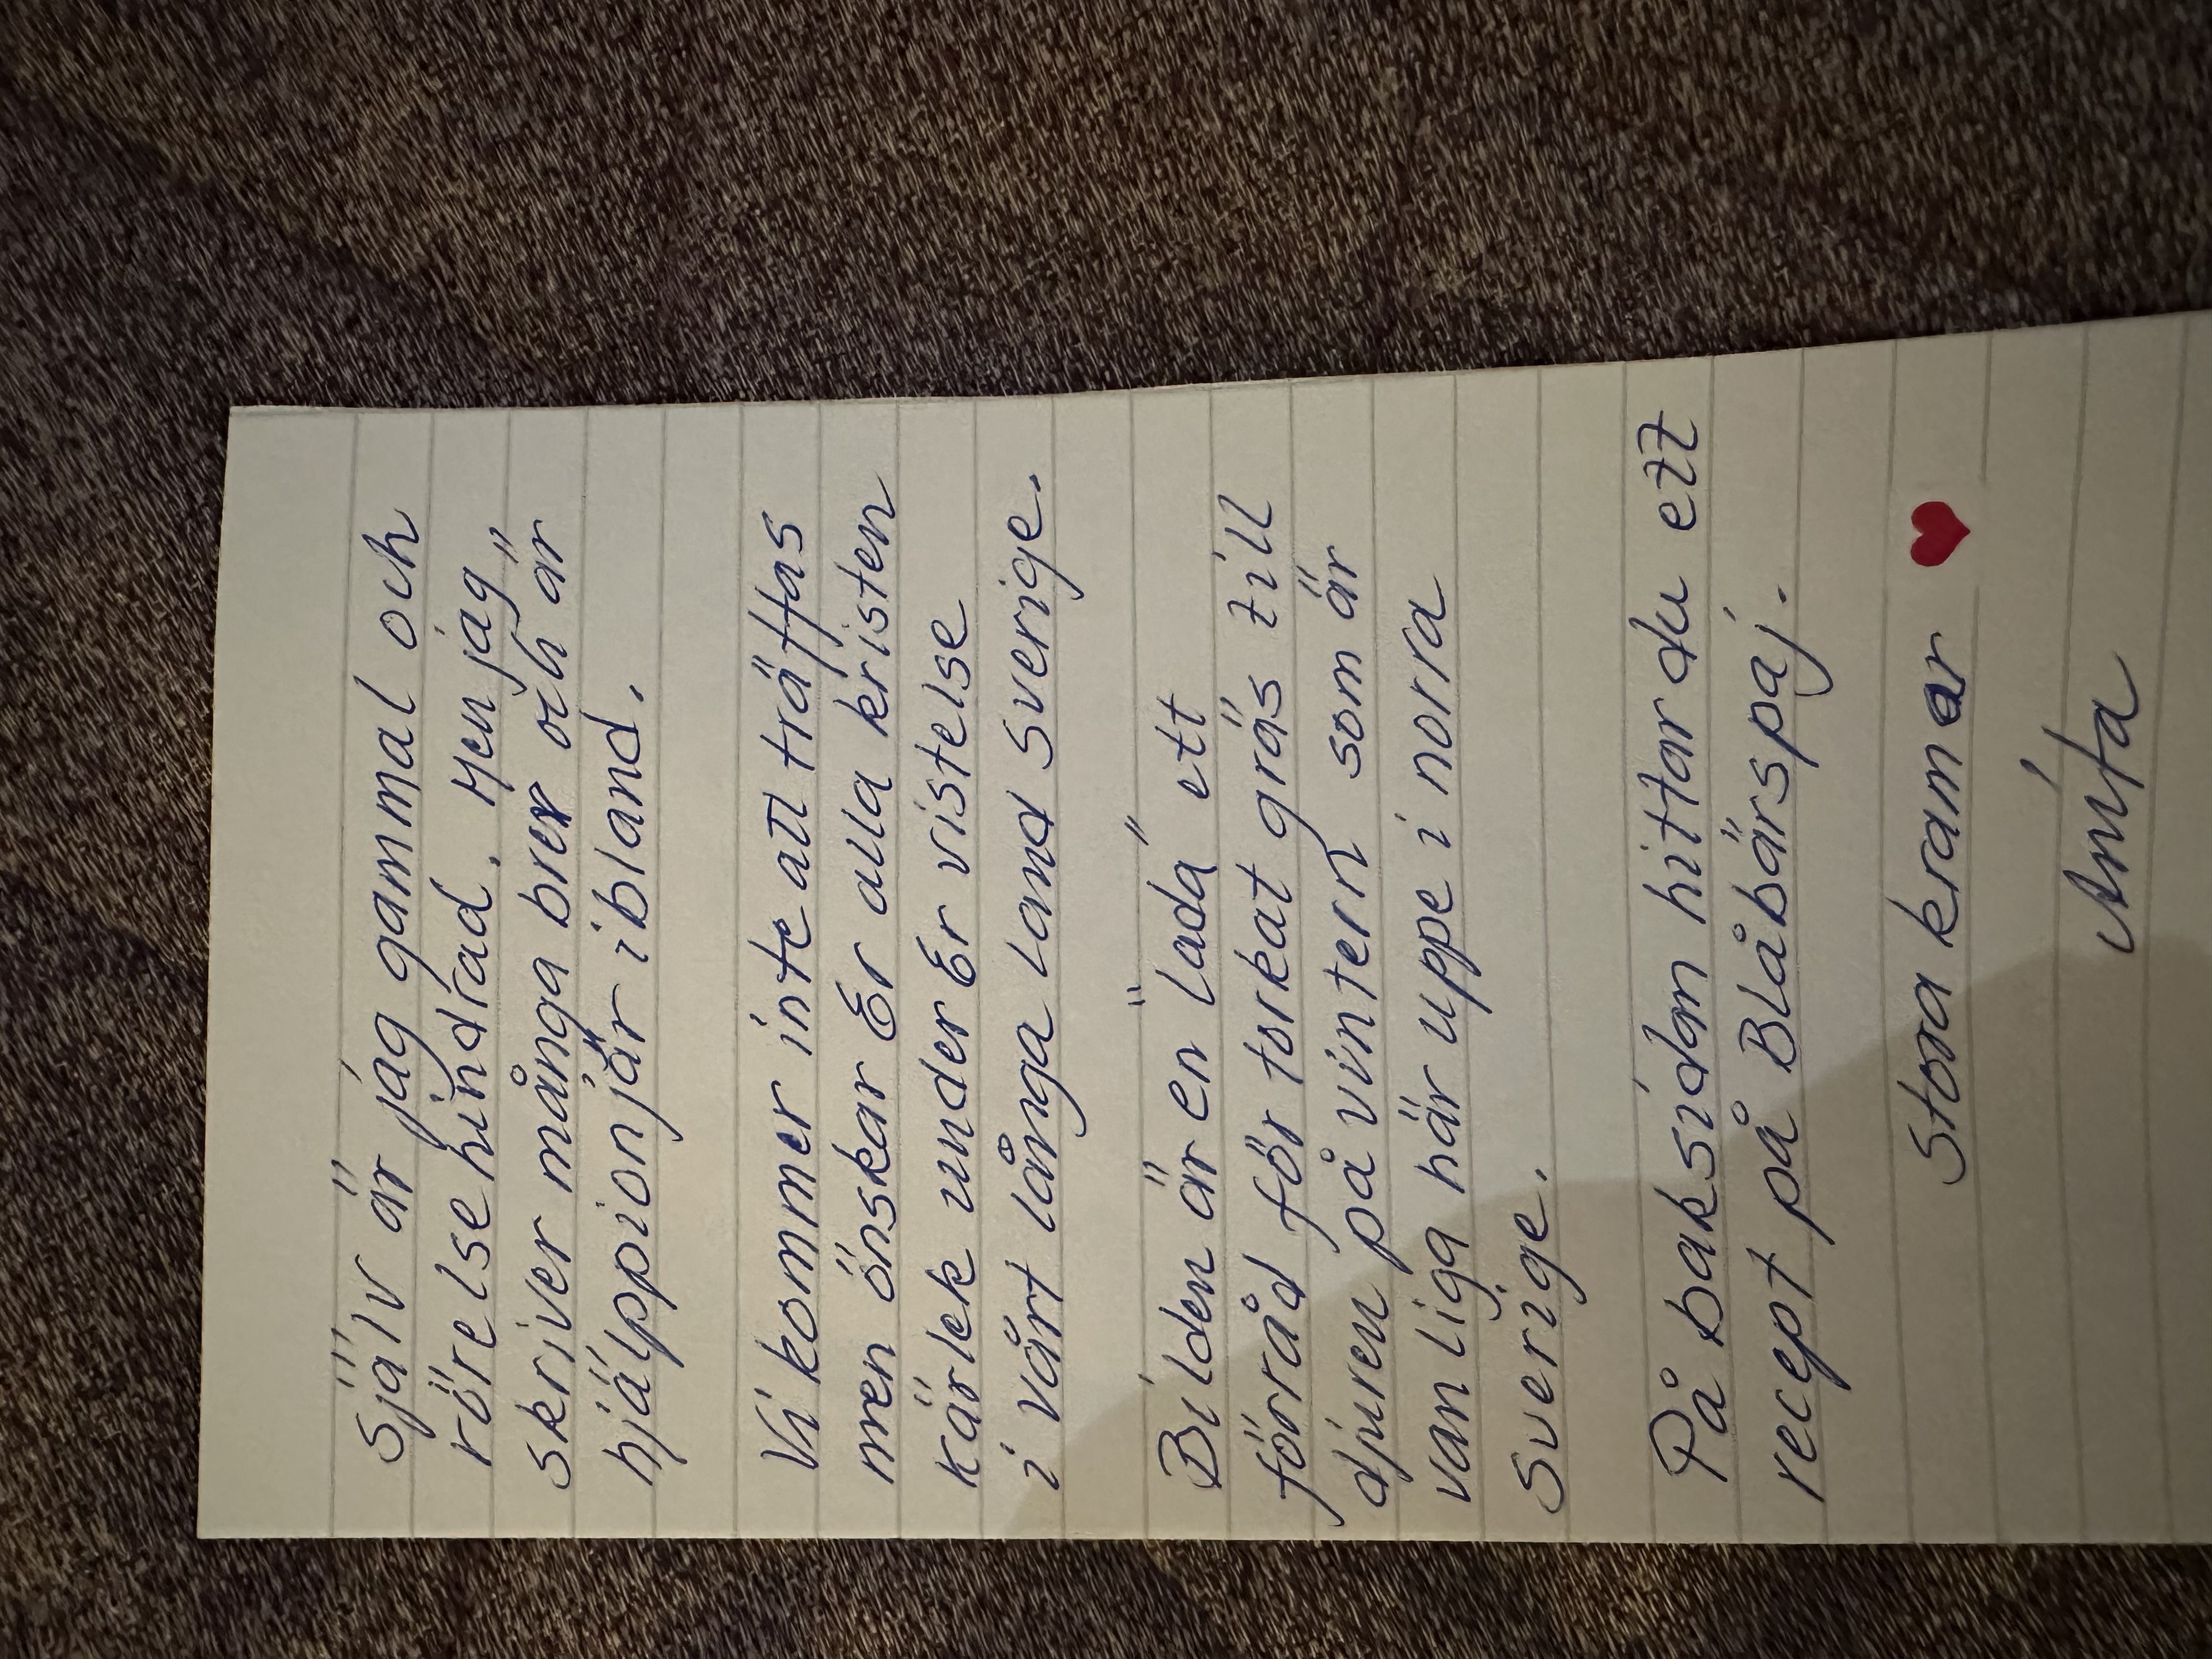 Själv är jag gammal och
rörelsehindrad. Men jag
skriver många brev och är
hjälppionjär ibland.
Vi kommer inte att träffas
men önskar Er alla kristen
kärlek under Er vistelse
i vårt långa land Sverige.
Bilden är en "lada" ett
förråd för torkat gräs till
djuren på vintern som är
vanliga här uppe i norra
Sverige.
På baksidan hittar du ett
recept på Blåbärspaj.
Stora kramar ♥
Anita